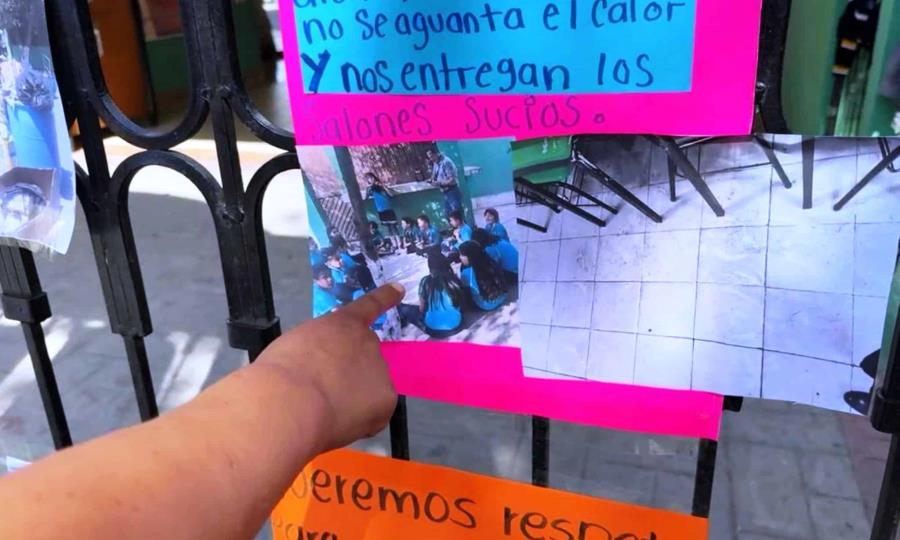 no se aguanta el calor
Y nos entregan los
Salones Sucios.
queremos respeto
para